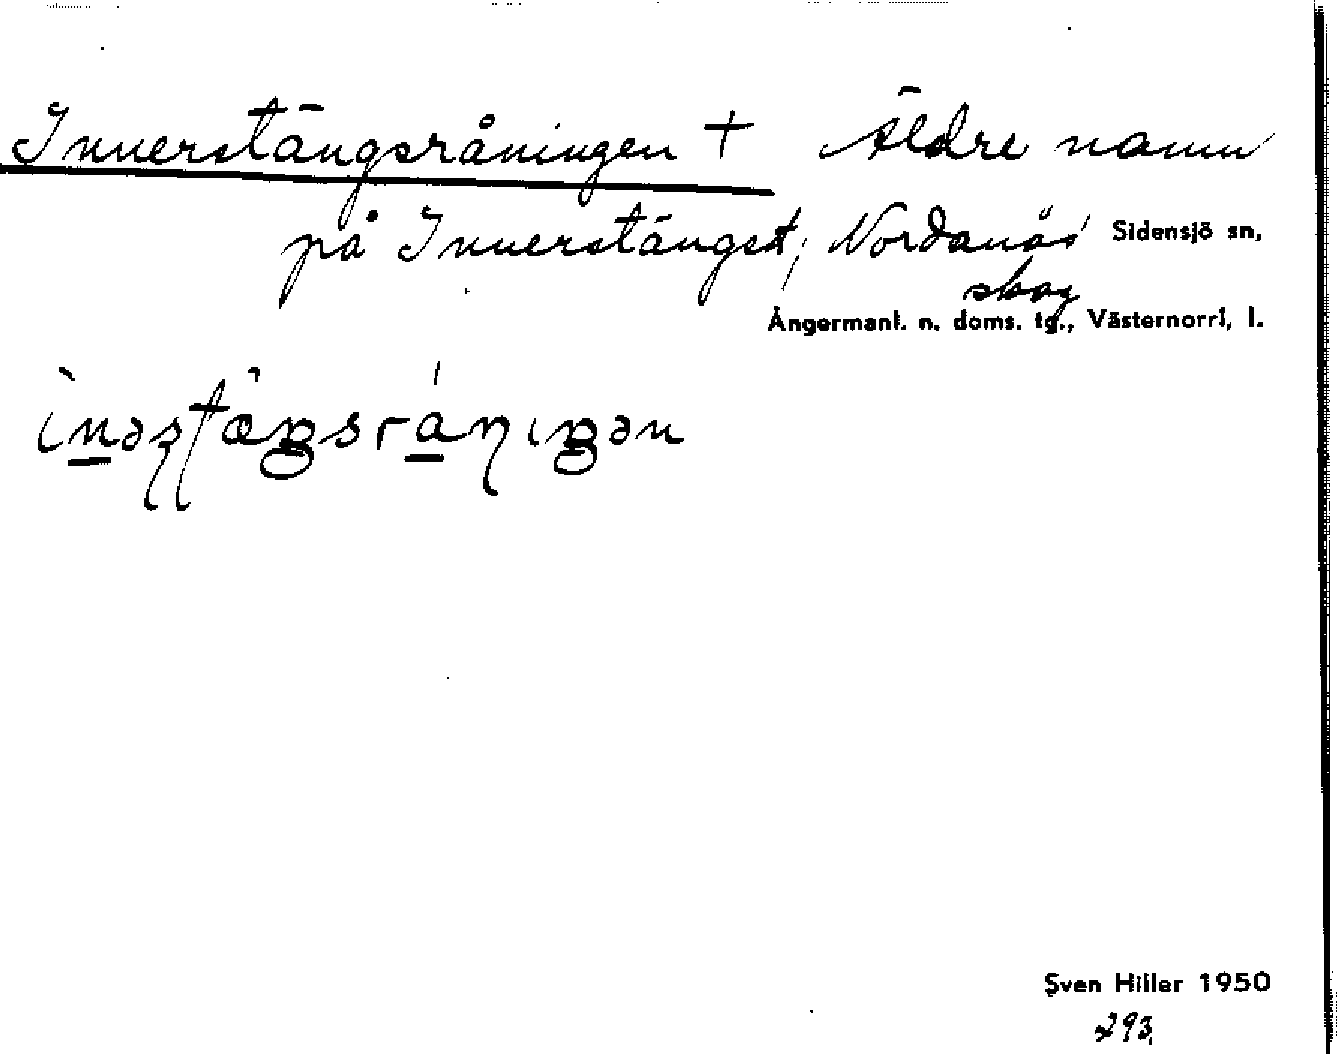 Innerstängsråningen + Äldre namn
på Innerstänget, Nordanås Sidensjö sn,
skog
Ångermanl. n. doms. tg., Västernorrl. l.
Sven Hiller 1950
293